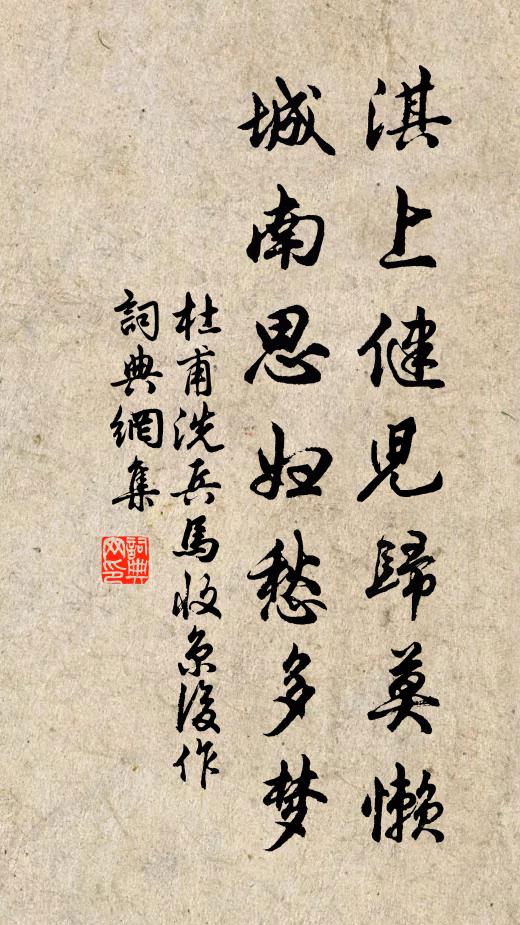 淇上健児歸莫懶
城南思妇愁多梦
杜甫洗兵馬收京後作
詞典網集
詞典
网印